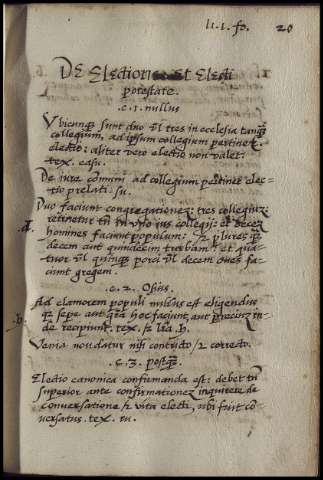 li. I. fo. 20
De Electione et Electi
potestate.
c. 1. nullus
Vbicunq sunt duo vl tres in ecclesia tanq
collegium, ad ipsum collegium pertinet
electio: aliter vero electio non valet.
tex. casu.
De iure comuni ad collegium pertinet elec-
tio prelati. su.
Duo faciunt congregatione, tres collegiu:
retinetur tn in vno ius collegij: et decem
homines faciunt populum: et plures q
decem aut quindecim turbam: et qua-
tuor vl quinq porci vl decem oues fa-
ciunt gregem.
.d.
c. 2. Osius.
Ad clamorem populi nullus est eligendus
q sepe aut gra hoc faciunt aut precium in-
de recipiunt. tex.
.b.
Venia non datur nisi contrito et correcto.
c. 3. postq
Electio canonica confirmanda est: debet tn
superior ante confirmatione inquirere de
conuersatione et vita electi, ubi fuit con-
uersatus. tex. su.